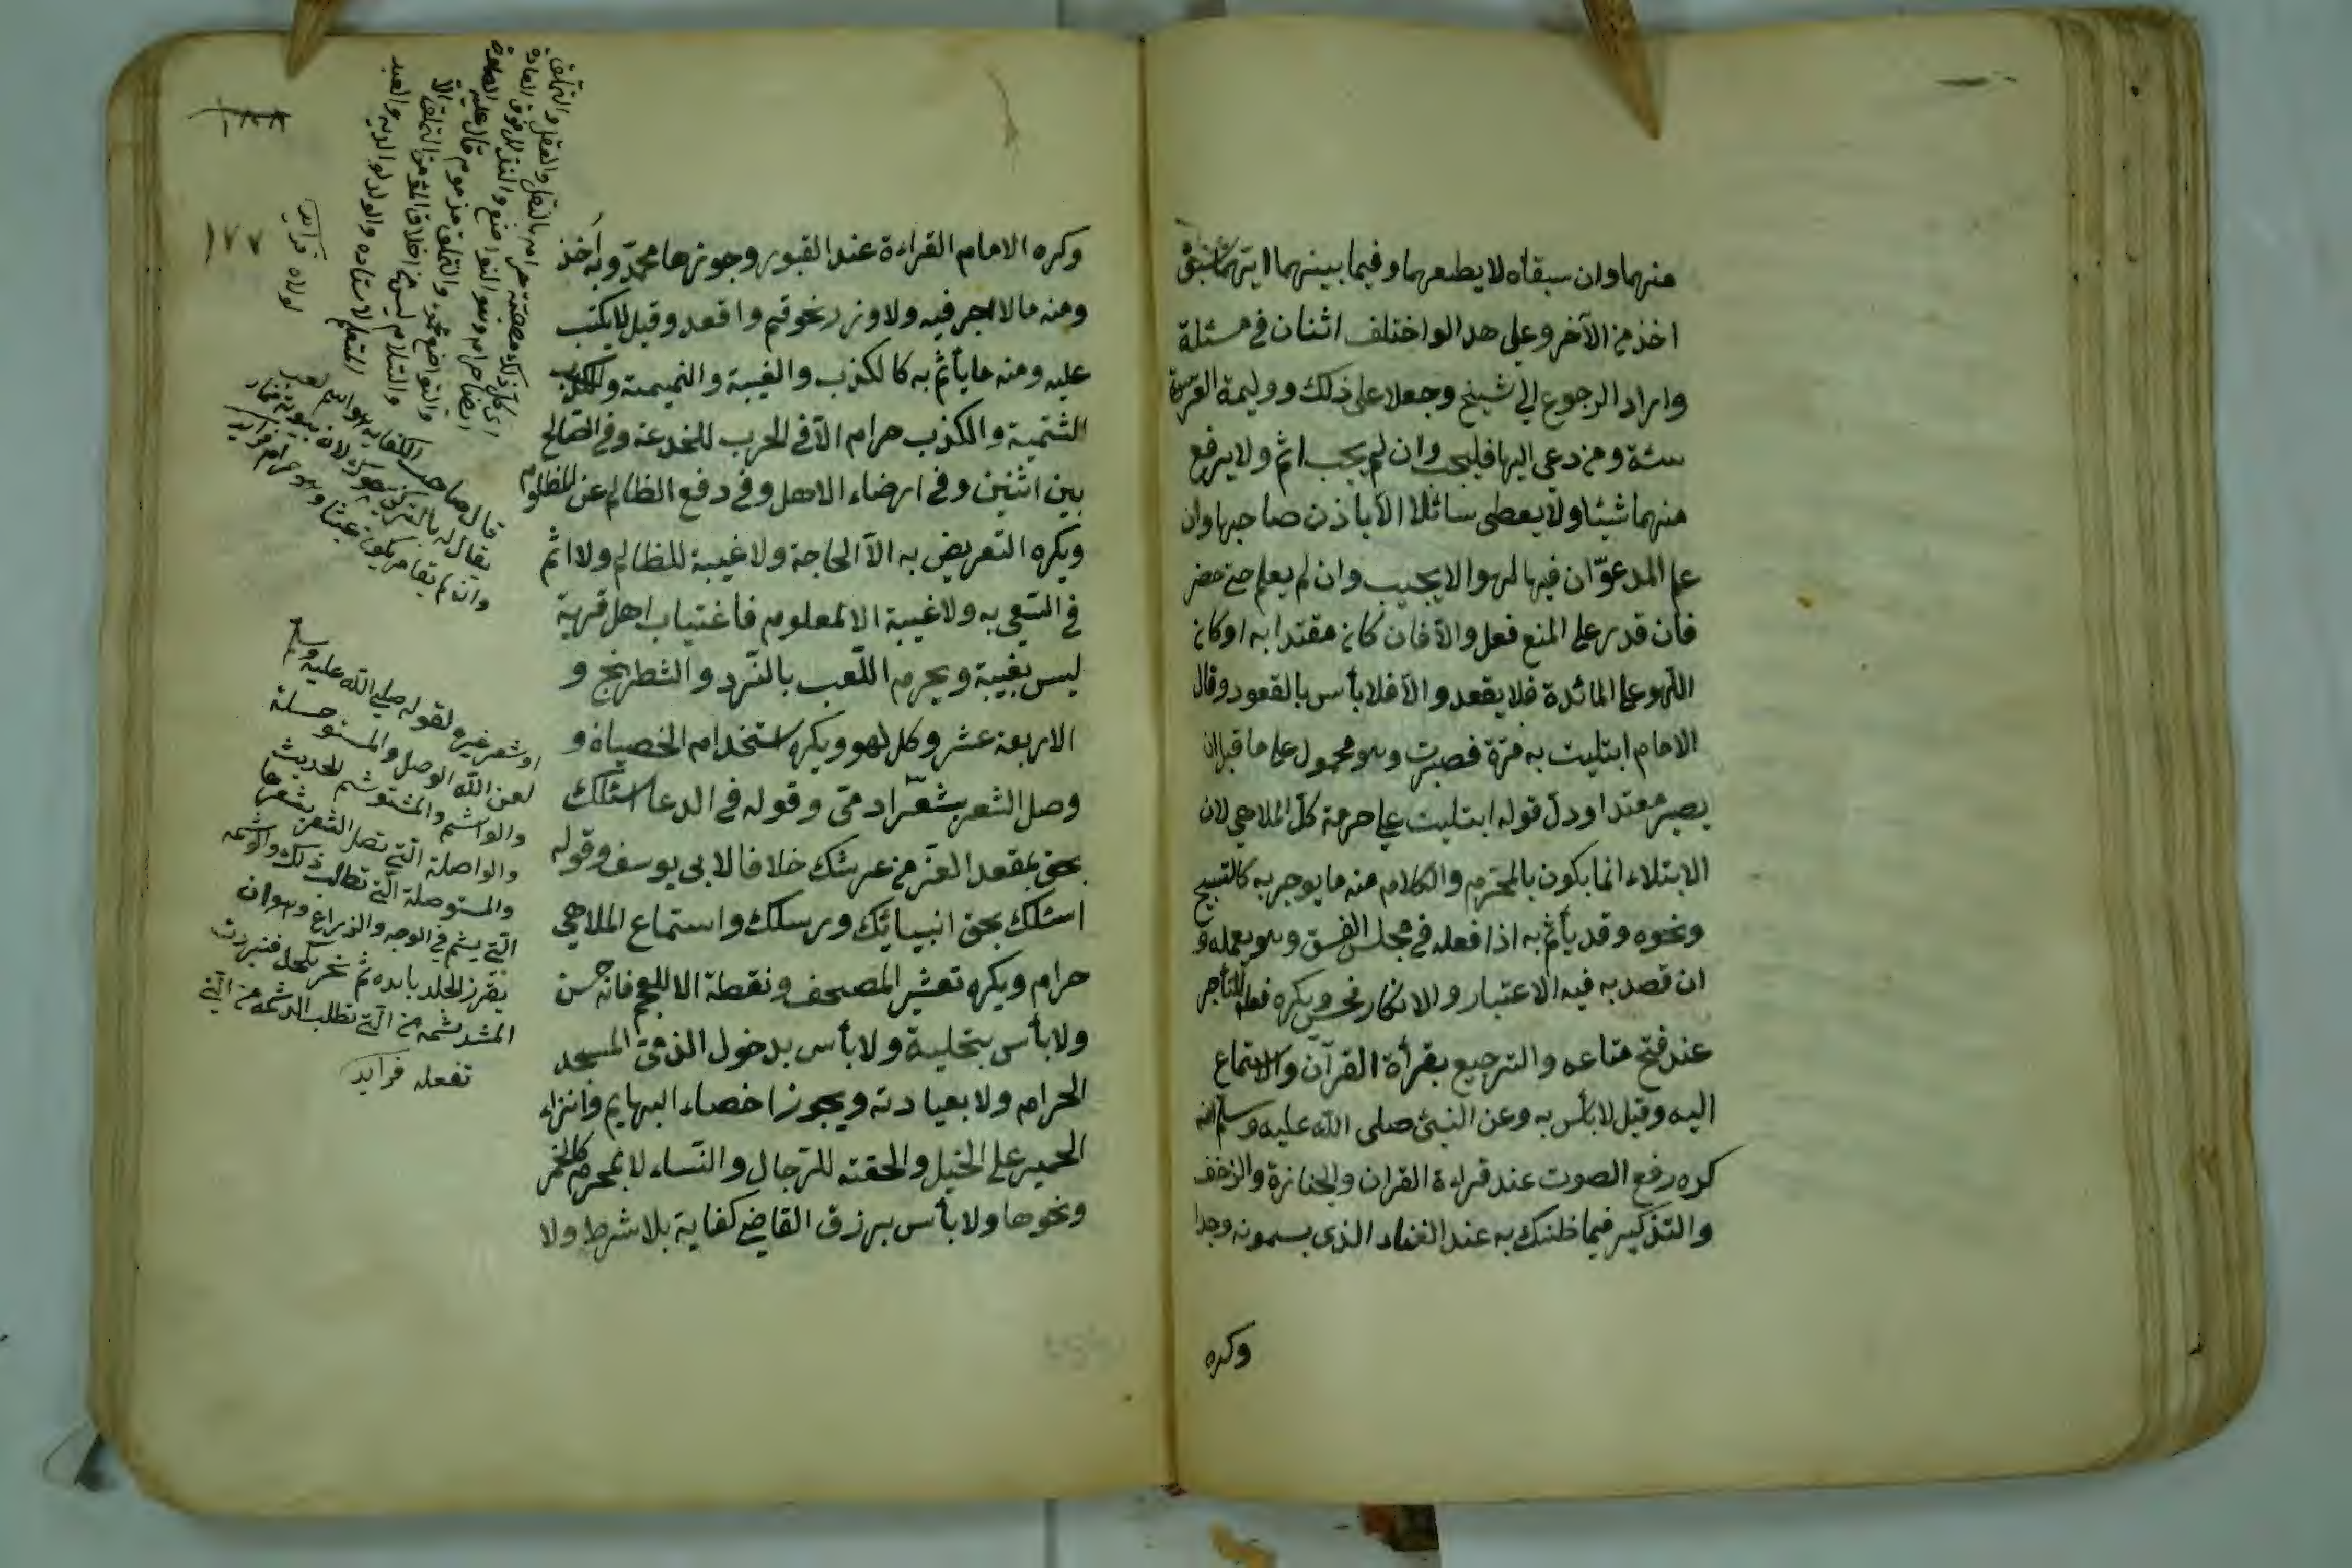 منهما وان سبقاه لا يطعهما وفيما بينهما ايتهما سبق
اخذ من الآخر وعلى هذا لو اختلف اثنان في مسئلة
وارادا الرجوع الى شيخ وجعلا على ذلك ووليمة العرس
سنة ومن دعى اليها فليجب وان لم يجب اثم ولا يرفع
منهما شيئا ولا يعطى سائلا الاّ باذن صاحبها وان
علم المدعوّ ان فيها لهوا لا يجيب وان لم يعلم حتى حضر
فان قدر على المنع فعل والاّ فان كان مقتدا به او كان
اللهو على المائدة فلا يقعد والاّ فلا بأس بالقعود وقال
الامام ابتليت به مرّة فصبرت وهو محمول على ما قبل ان
يصير مقتدا ودلّ قوله ابتليت على حرمة كلّ الملاهي لان
الابتلاء انما يكون بالمحرّم والكلام منه ما يوجر به كالتسبيح
ونحوه وقد يأثم به اذا فعله في مجلس الفسق وهو يعمله و
ان قصد به فيه الاعتبار والانكار فحسن ويكره فعله للتاجر
عند فتح متاعه والترجيع بقرأة القرآن والاستماع
اليه وقيل لا بأس به وعن النبيّ صلى الله عليه وسلم انه
كره رفع الصوت عند قراءة القران والجنازة والزحف
والتذكير فيما ظنك به عند الغناء الذى يسمونه وجدا
وكره
١٨٨
١٧٧
وكره الامام القراءة عند القبور وجوزها محمّد وبه اخذ
ومنه ما لا اجر فيه ولا وزر نحو قم واقعد وقيل لا يكتب
عليه ومنه ما يأثم به كالكذب والغيبة والنميمة و
الشتمية والكذب حرام الاّ في الحرب للخدعة وفي الصّالح
بين اثنين وفي ارضاء الاهل وفي دفع الظالم عن المظلوم
ويكره التعريض به الاّ لحاجة ولا غيبة للظالم ولا اثم
في السّعي به ولا غيبة الا لمعلوم فاغتياب اهل قرية
ليس بغيبة ويحرم اللّعب بالنّرد والشطرنج و
الاربعة عشر وكل لهو ويكره استخدام الخصيان و
وصل الشعر بشعر ادمّى وقوله في الدعا اسئلك
بحق بمقعد العزّ من عرشك خلافا لابى يوسف وقوله
اسئلك بحق انبيائك ورسلك واستماع الملاهي
حرام ويكره تعشير المصحف ونقطة الا للعجم فانه حسن
ولا بأس بتحلية ولا بأس بدخول الذمّى المسجد
الحرام ولا بعيادته ويجوز اخصاء البهايم وانزاء
الحمير على الخيل والحقنة للرّجال والنّساء لا بمحرم كالخمر
ونحوها ولا بأس برزق القاضي كفاية بلا شرط ولا
والتواضع محمود والتملّق مذموم قال عليه الصلوة
والسّلام ليس من اخلاق المؤمن التملّق الاّ
للمتعلّم لاستاذه والولد لوالديه والعبد
لمولاه فرايد
قال صاحب الكفاية هو اسم لعبة
يقال له بالتركى
وان لم يقامر يكون عبثا وهو حرام فرايد
او شعر غيره لقوله صلى الله عليه وسلم
لعن الله الوصل والمستوصلة
والواشم والمشتوشم الحديث
والواصلة الّتى تصل الشعر بشعرها
والمستوصلة الّتى تطالب ذلك والوشمة
الّتى يشم في الوجه والذراع وهو ان
يقرز الجلد بابده ثم
تفعله فرايد